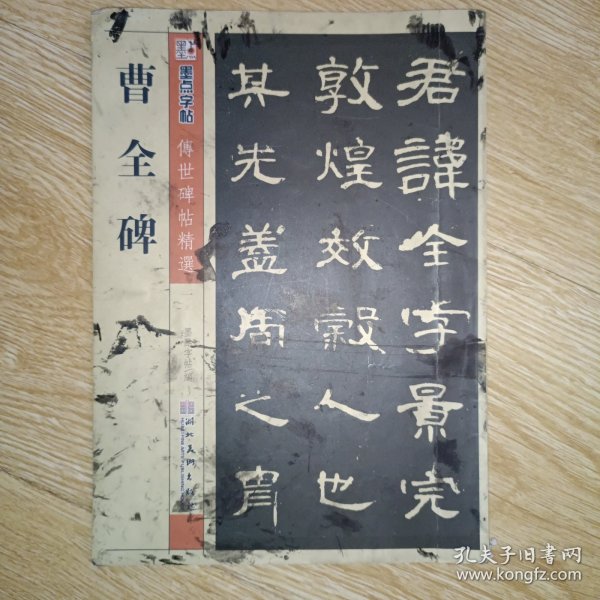 君諱全字景完
敦煌效穀人也
其先蓋周之胄
墨点
墨点字帖
傳世碑帖精選
墨点字帖 編
湖北美术出版社
曹全碑
孔夫子旧书网
www.kongfz.com